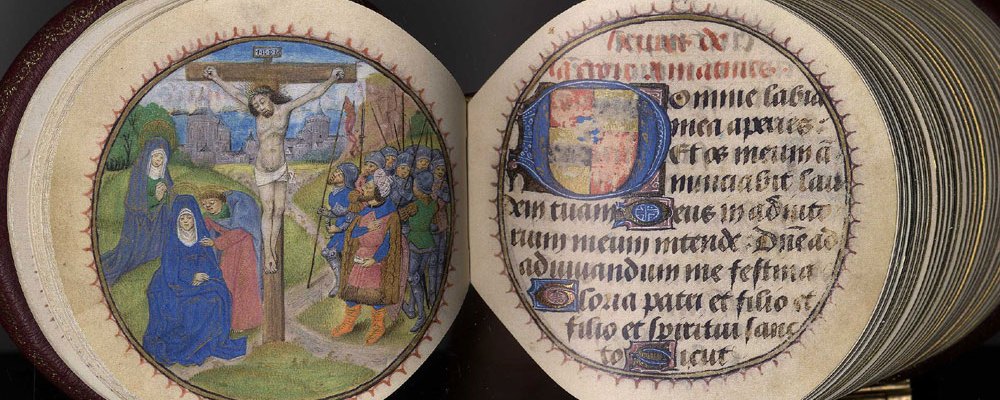 INRI
heures de
la croix a matines
Domine labia
mea aperies:
Et os meum ā
nunciabit lau
dem tuam Deus in adiuto
rium meum intende: Dn̄e ad
adiuuandum me festina
Gloria patri et filio et
filio et spiritui sanc
to Sicut